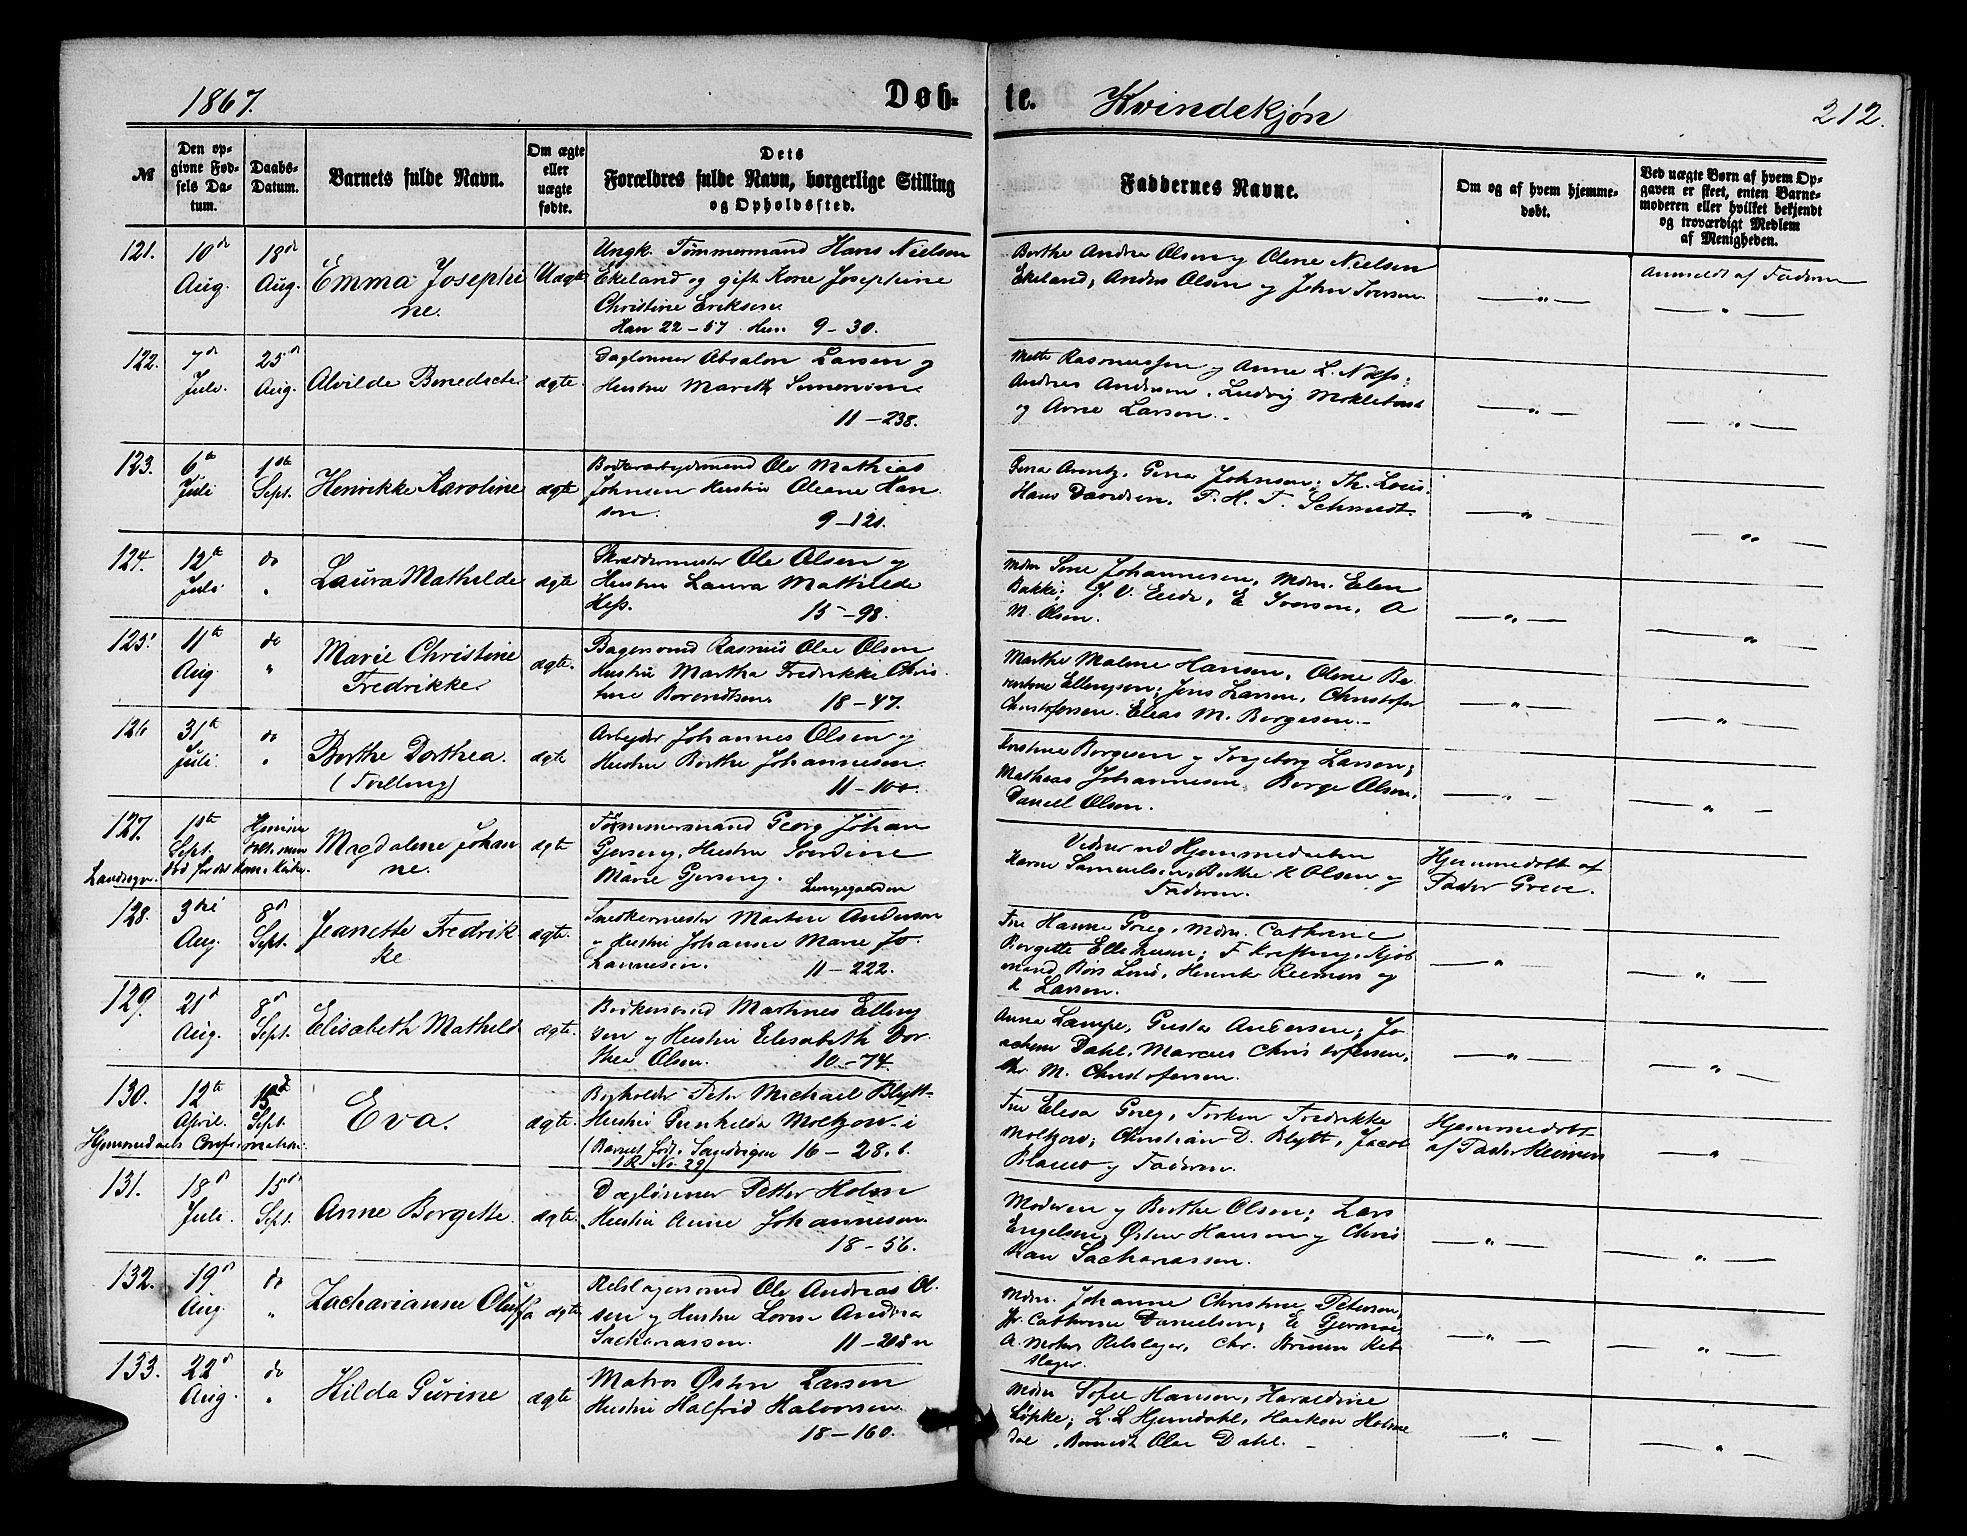 1867.
Døb-
te.
Kvindekjøn
212.
№
Den op-
givne Fød-
sels Da-
tum.
Daabs-
Datum.
Barnets fulde Navn.
Om ægte
eller
uægte
fødte.
Dets
Forældres fulde Navn, borgerlige Stilling
og Opholdssted.
Faddernes Navne.
Om og af hvem hjemme-
døbt.
Ved uægte Børn af hvem Op-
gaven er skeet, enten Barne-
moderen eller hvilket bekjendt
og troværdigt Medlem
af Menigheden.
121.
10de
Aug.
18de
Aug.
Emma Josephi
ne.
Uægte
Ungk. Tømmermand Hans Nielsen
Ekeland og gift Kone Josephine
Christine Eriksen.
Han 22-57. Hun 9-30.
Berthe Andrea Olsen og Olene Nielsen
Ekeland; Anders Olsen og John Iversen
—"—
Anmeldt af Faderen
—"—
122.
7de
Juli.
25de
Aug.
Alvilde Benedicte
ægte.
Daglønner Absalon Larsen og
Hustru Marith
11-238.
Mette Rasmussen og Anne L. Næss;
Andreas Andersen, Ludvig
og Arne Larsen.
—"—
—"—
123.
6te
Juli
1ste
Sept.
Henrikke Karoline
ægte
Bødkerarbeidsmand Ole Mathias
Johnsen Hustru Oleane Han
sen.
9-121.
Gina Arentz, Gina Johnsen; Th. Louis.
Hans Davidsen, T. H. T. Schmidt.
—"—
—"—
124.
12te
Juli
do
"
Laura Mathilde
ægte
Skræddermester Ole Olsen og
Hustru Laura Mathilde
Hess.
15-98.
Mdm Sine Johannesen, Mdm. Elen
Bakke; J. V. Eide, E Iversen, A
M. Olsen.
—"—
—"—
125.
11te
Aug
do
"
Marie Christine
Fredrikke.
ægte.
Bagersvend Rasmus Olai Olsen
Hustru Martha Fredrikke Chris
tine Berendtsen.
18-47.
Marthe Malene Hansen, Oline Be
rentine Ellingsen; Jens Larsen, Christofer
Christofersen. Elias M. Børgesen.
—"—
—"—
126
31te
Juli.
do
"
Berthe Dorthea.
(Tvilling)
ægte
Arbeider Johannes Olsen og
Hustru Berthe Johannesen.
11-100.
Kirstine Børgesen og Ingeborg Larsen;
Mathias Johannesen, Børge Olsen,
Daniel Olsen.
—"—
—"—
127.
1ste
Sept.
Hjemme
døbt
Landsogn.
død før det kom i Kirke.
Magdalene Johan
ne.
ægte
Tømmersmand Georg Johan
Gerseng, Hustru Severdine
Marie Gerseng.
Lungegaarden
Vidner ved Hjemmedaaben
Karne Samuelsen, Berthe K Olsen og
Faderen.
Hjemmedøbt af
Pastor Greve.
128.
3die
Aug.
8de
Sept.
Jeanette Fredrik
ke
ægte.
Snedkermester Morten Andersen
og Hustru Johanne Marie Jo
hannesen.
11-222.
Fru Hanne Greg, Mdm. Cathrine
Børgette Ellerhusen; F Krefting, Kjøb
mand Børs Lund, Henrik Reimers og
K Larsen.
—"—
—"—
129.
21de
Aug.
8de
Sept.
Elisabeth Mathild
ægte.
Bødkersvend Martines Elling
sen og Hustru Elisabeth Dor
thea Olsen.
10-74.
Anna Lampe, Gusta Andersen; Jo
achim Dahl, Marcus Christofersen,
Chr. M. Christofersen.
—"—
—"—
130.
12te
April.
15de
Sept.
Hjemmedaabs Confirmation.
Eva.
ægte.
Bogholder Peter Michael Blytt
Hustru Gunhilda Moltzow i
(Barnet født i Sandvigen 16-28.b.
(R No. 29)
Fru Elisa Greg, Frøken Fredrikke
Moltzow; Christian D. Blytt, Jacob
Blauw og Faderen.
Hjemmedøbt
af Pastor Reimers
—"—
131.
18de
Juli.
15de
Sept.
Anne Børgette.
ægte.
Daglønner Petter Holm
Hustru Anne Johannesen.
18-56.
Moderen og Berthe Olsen; Lars
Engelsen, Østen Hansen og Chris
tian Sachariassen.
—"—
—"—
132.
19de
Aug.
do
"
Zacharianne Oluffa
ægte.
Rebslagersvend Ole Andreas Ol
sen og Hustru Lovise Andrea
Sachariassen.
11-208 n
Mdm. Johanne Christine Petersen,
Jfr. Cathrine Danielsen; E Gjermoe,
A. Moter Rebslager, Chr. Børmen Reb
slager.
—"—
—"—
133.
22de
Aug.
do
"
Hilda Gurine
ægte
Matros Østen Larsen
Hustru Halfrid Halvorsen.
18-160.
Mdm Sofie Hansen, Haraldine
Løpke; L. L Hjemdahl, Haakon Holme
dal, Berendt Olai Dahl.
—"—
—"—